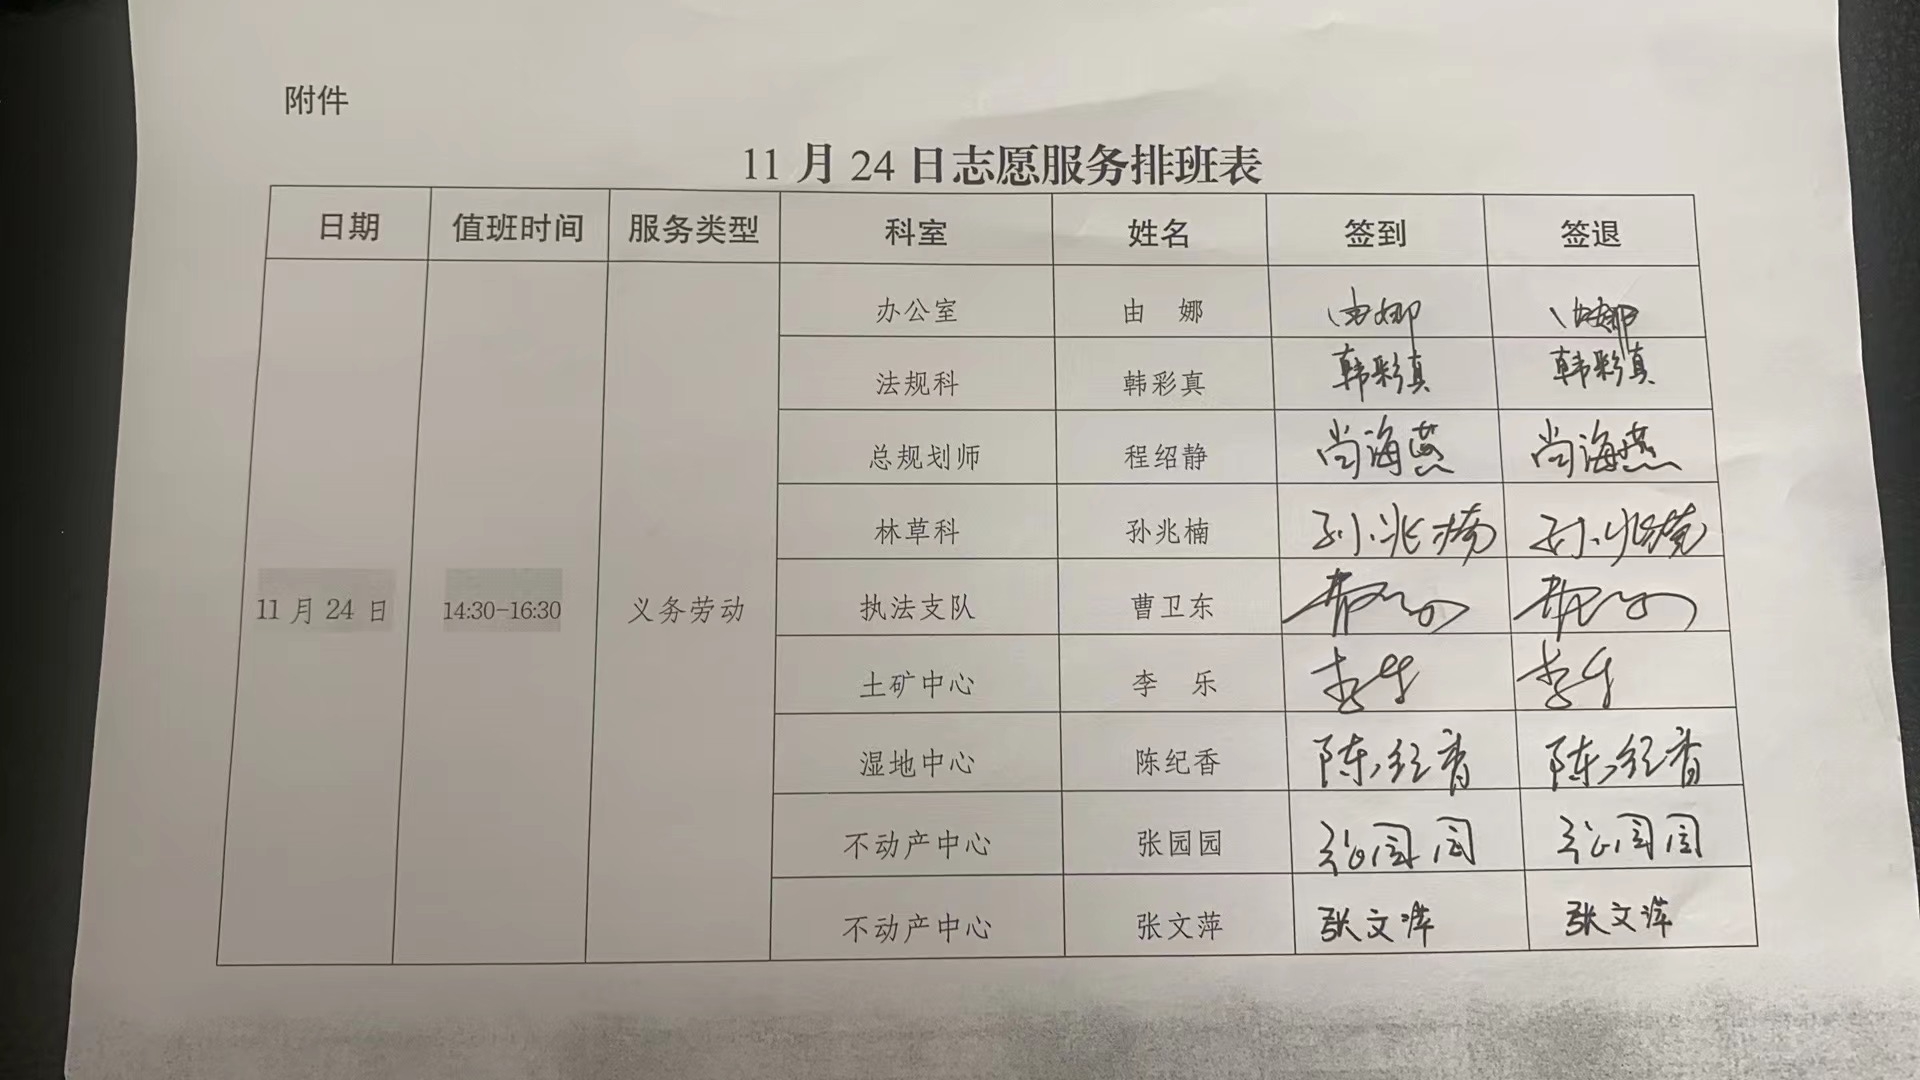 附件
11 月 24 日志愿服务排班表
日期 值班时间 服务类型 科室 姓名 签到 签退
11 月 24 日 14:30-16:30 义务劳动
办公室 由 娜 由娜 由娜
法规科 韩彩真 韩彩真 韩彩真
总规划师 程绍静 尚海燕 尚海燕
林草科 孙兆楠 孙兆楠 孙兆楠
执法支队 曹卫东
土矿中心 李 乐 李乐 李乐
湿地中心 陈纪香 陈纪香 陈纪香
不动产中心 张园园 张园园 张园园
不动产中心 张文萍 张文萍 张文萍